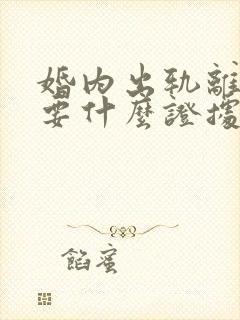 婚内出轨離
要什麼證據
餡蜜